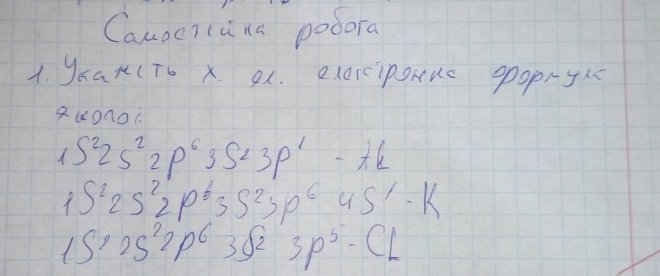 Самостійна робота
1. Укажіть х. ел. електронна формула
якого:
1S²2S²2p⁶3S²3p¹ - Al
1S²2S²2p⁶3S²3p⁶ 4S¹ - K
1S²2S²2p⁶ 3S² 3p⁵ - CL